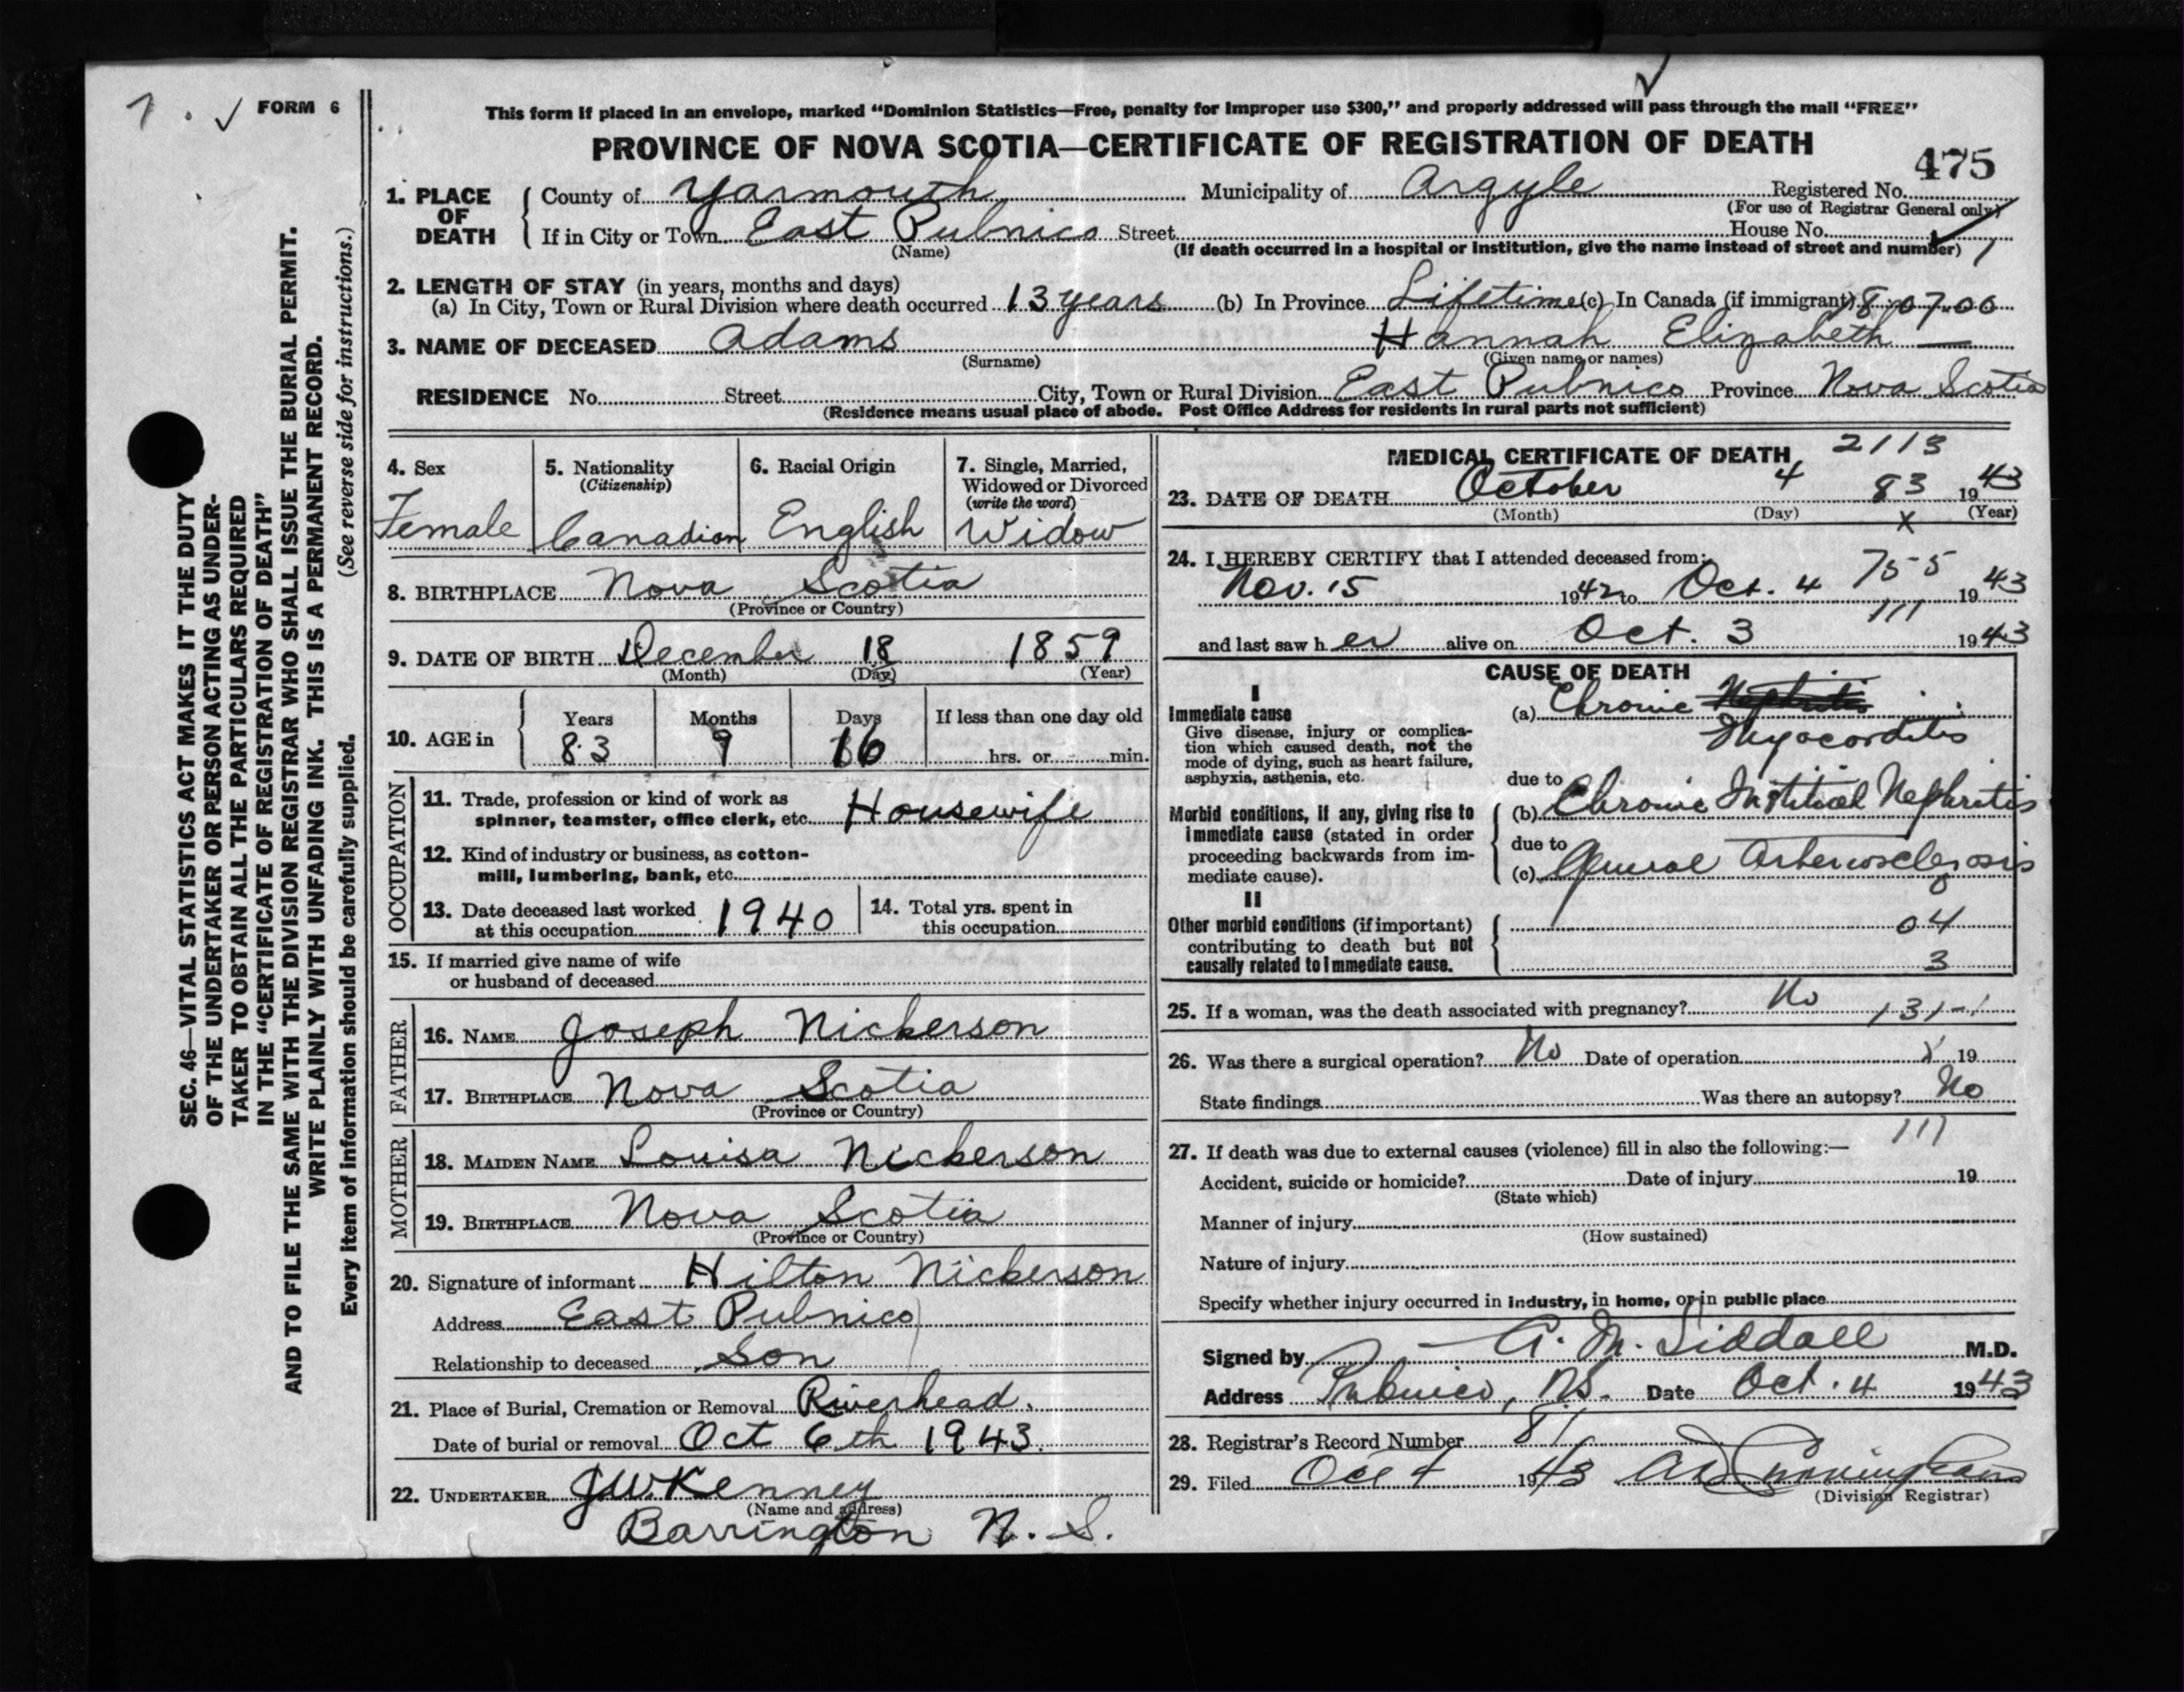 7 . ✓ FORM 6
This form if placed in an envelope, marked "Dominion Statistics—Free, penalty for improper use $300," and properly addressed will pass through the mail "FREE"
PROVINCE OF NOVA SCOTIA—CERTIFICATE OF REGISTRATION OF DEATH
475
1. PLACE OF DEATH County of Yarmouth Municipality of Argyle Registered No.
(For use of Registrar General only)
If in City or Town East Pubnico Street House No.
(Name) (If death occurred in a hospital or institution, give the name instead of street and number)
2. LENGTH OF STAY (in years, months and days)
(a) In City, Town or Rural Division where death occurred 13 years (b) In Province Lifetime (c) In Canada (if immigrant)
3. NAME OF DECEASED Adams Hannah Elizabeth —
(Surname) (Given name or names)
RESIDENCE No. Street City, Town or Rural Division East Pubnico Province Nova Scotia
(Residence means usual place of abode. Post Office Address for residents in rural parts not sufficient)
4. Sex
Female
5. Nationality
(Citizenship)
Canadian
6. Racial Origin
English
7. Single, Married,
Widowed or Divorced
(write the word)
Widow
8. BIRTHPLACE Nova Scotia
(Province or Country)
9. DATE OF BIRTH December 18 1859
(Month) (Day) (Year)
10. AGE in
Years Months Days If less than one day old
83 9 16 hrs. or min.
OCCUPATION
11. Trade, profession or kind of work as
spinner, teamster, office clerk, etc. Housewife
12. Kind of industry or business, as cotton-
mill, lumbering, bank, etc.
13. Date deceased last worked
at this occupation 1940
14. Total yrs. spent in
this occupation
15. If married give name of wife
or husband of deceased
FATHER
16. NAME Joseph Nickerson
17. BIRTHPLACE Nova Scotia
(Province or Country)
MOTHER
18. MAIDEN NAME Louisa Nickerson
19. BIRTHPLACE Nova Scotia
(Province or Country)
20. Signature of informant Hilton Nickerson
Address East Pubnico
Relationship to deceased Son
21. Place of Burial, Cremation or Removal Riverhead.
Date of burial or removal Oct 6th 1943.
22. UNDERTAKER J.W. Kenney
(Name and address)
Barrington N. S.
MEDICAL CERTIFICATE OF DEATH 2113
23. DATE OF DEATH October 4 83 1943
(Month) (Day) X (Year)
24. I HEREBY CERTIFY that I attended deceased from:
75-5
Nov. 15 1942 to Oct. 4 1943
111
and last saw her alive on Oct. 3 1943
CAUSE OF DEATH
I
Immediate cause
Give disease, injury or complica-
tion which caused death, not the
mode of dying, such as heart failure,
asphyxia, asthenia, etc.
(a) Chronic Nephritis
Myocarditis
due to
Morbid conditions, if any, giving rise to
immediate cause (stated in order
proceeding backwards from im-
mediate cause).
(b) Chronic Nephritis
due to
(c) General Arteriosclerosis
II
Other morbid conditions (if important)
contributing to death but not
causally related to immediate cause.
04
3
25. If a woman, was the death associated with pregnancy? No 131-1
26. Was there a surgical operation? No Date of operation 19
State findings Was there an autopsy? No
111
27. If death was due to external causes (violence) fill in also the following:—
Accident, suicide or homicide? Date of injury 19
(State which)
Manner of injury
(How sustained)
Nature of injury
Specify whether injury occurred in industry, in home, or in public place
Signed by A. M. Siddall M.D.
Address Pubnico, N.S. Date Oct. 4 1943
28. Registrar's Record Number 81
29. Filed Oct 4 1943
(Division Registrar)
SEC. 46—VITAL STATISTICS ACT MAKES IT THE DUTY
OF THE UNDERTAKER OR PERSON ACTING AS UNDER-
TAKER TO OBTAIN ALL THE PARTICULARS REQUIRED
IN THE "CERTIFICATE OF REGISTRATION OF DEATH"
AND TO FILE THE SAME WITH THE DIVISION REGISTRAR WHO SHALL ISSUE THE BURIAL PERMIT.
WRITE PLAINLY WITH UNFADING INK. THIS IS A PERMANENT RECORD.
Every item of information should be carefully supplied. (See reverse side for instructions.)